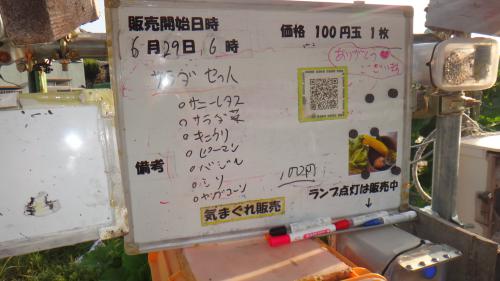 販売開始日時
価格 100円玉 1枚
6月29日 6時
ありがとう
ございます
サラダセット
○サニーレタス
○サラダ菜
○キュウリ
○ピーマン
○バジル
○シソ
○ヤングコーン
備考
100円
気まぐれ販売
ランプ点灯は販売中
↓